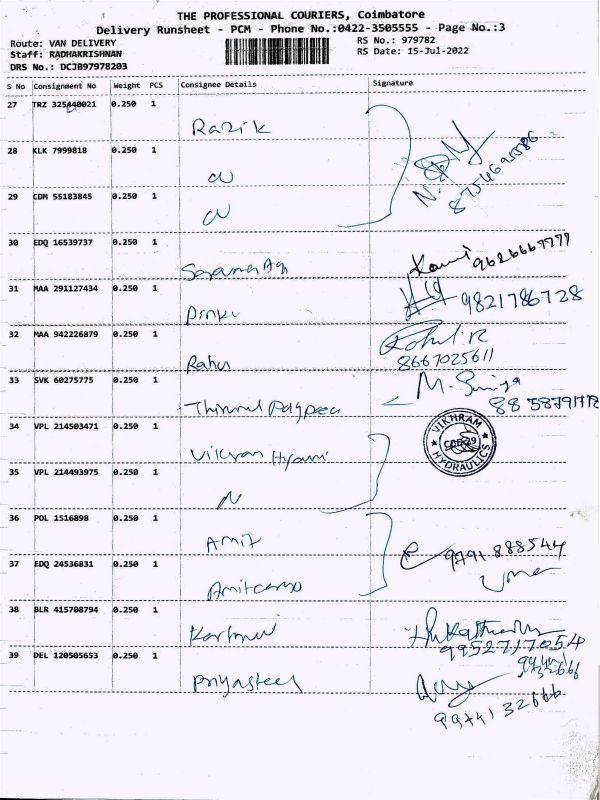 THE PROFESSIONAL COURIERS, Coimbatore
Delivery Runsheet - PCM - Phone No.:0422-3505555 - Page No.:3
Route: VAN DELIVERY RS No.: 979782
Staff: RADHAKRISHNAN RS Date: 15-Jul-2022
DRS No.: DCJB97978203
S No Consignment No Weight PCS Consignee Details Signature
27 TRZ 325440021 0.250 1
Razik
28 KLK 7999818 0.250 1
29 CDM 55183845 0.250 1
30 EDQ 16539737 0.250 1
9626667779
31 MAA 291127434 0.250 1
Pinku 9821786728
32 MAA 942226879 0.250 1
Rahul Rahul.R
8667025611
33 SVK 60275775 0.250 1
Thirumul
34 VPL 214503471 0.250 1
VIKHRAM HYDRAULICS
Vikram
35 VPL 214493975 0.250 1
36 POL 1516898 0.250 1
Amit 9791888544
37 EDQ 24536831 0.250 1
Amitcargo Uma
38 BLR 415708794 0.250 1
9952717054
39 DEL 120505653 0.250 1
Priyasteel
9974132666